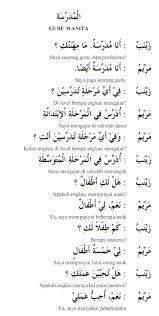 الْمُدَرِّسَةُ
GURU WANITA
زَيْنَبُ : أَنَا مُدَرِّسَةٌ. مَا مِهْنَتُكِ ؟
Saya seorang guru. Apa profesimu?
مَرْيَمُ : أَنَا مُدَرِّسَةٌ أَيْضًا.
Saya juga seorang guru
زَيْنَبُ : فِي أَيِّ مَرْحَلَةٍ تُدَرِّسِيْنَ ؟
Di level berapa engkau mengajar?
مَرْيَمُ : أُدَرِّسُ فِي الْمَرْحَلَةِ الْإِبْتِدَائِيَّةِ
Saya mengajar di sekolah dasar
مَرْيَمُ : وَفِي أَيِّ مَرْحَلَةٍ تُدَرِّسِيْنَ أَنْتِ ؟
Kalau engkau di level berapa engkau mengajar?
زَيْنَبُ : أُدَرِّسُ فِي الْمَرْحَلَةِ الْمُتَوَسِّطَةِ
Saya mengajar di sekolah menengah
زَيْنَبُ : هَلْ لَكِ أَطْفَالٌ ؟
Apakah engkau mempunyai anak?
مَرْيَمُ : نَعَمْ، لِي أَطْفَالٌ
Ya, saya mempunyai beberapa anak
زَيْنَبُ : كَمْ طِفْلًا لَكِ ؟
Berapa anakmu?
مَرْيَمُ : لِي خَمْسَةُ أَطْفَالٍ
Saya mempunyai lima orang anak
زَيْنَبُ : هَلْ تُحِبِّيْنَ عَمَلَكِ ؟
Apakah engkau menyukai pekerjaanmu?
مَرْيَمُ : نَعَمْ، أُحِبُّ عَمَلِيْ
Ya, saya menyukai pekerjaanku